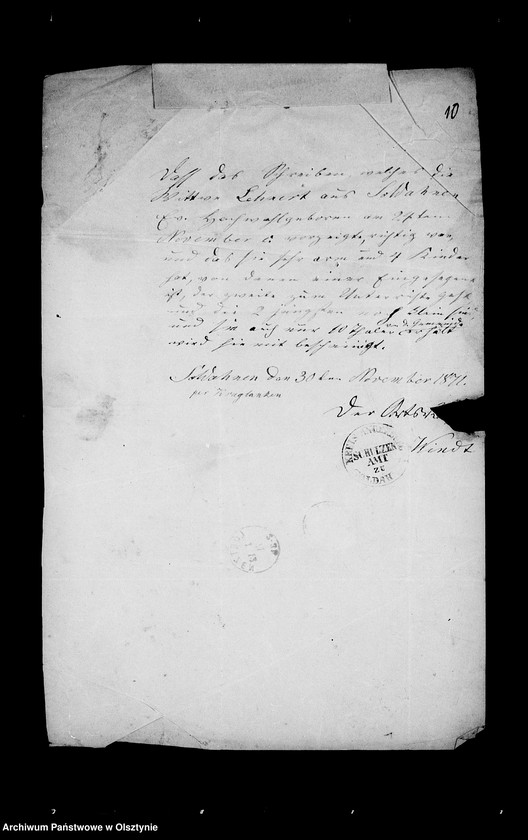 10
Daß das Schreiben, welches die
Wittwe Lehnert aus Soldahnen
Ew. Hochwohlgeboren am
November c. vorzeigte, richtig war,
und daß sie sehr arm und 4 Kinder
hat, von denen einer Eingesegnet
ist, der zweite zum Unterricht geht
und die 2 jüngsten noch klein sind
und sie auch nur 10 Thaler von d. Gemeinde erhält
wird hiermit bescheinigt.
Soldahnen den 30ten November 1871.
per Kruglanken
Der Orts
Windt
KREIS ANGERBURG
SCHULZEN
AMT
ZU
SOLDAH